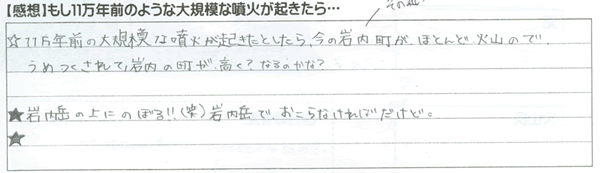 【感想】もし11万年前のような大規模な噴火が起きたら…
☆11万年前の大規模な噴火が起きたとしたら、今の岩内町が、ほとんど、火山ので、
うめつくされて、岩内の町が、高く？なるのかな？
★岩内岳の上にのぼる!!(笑)岩内岳で、おこらなければだけど。
★